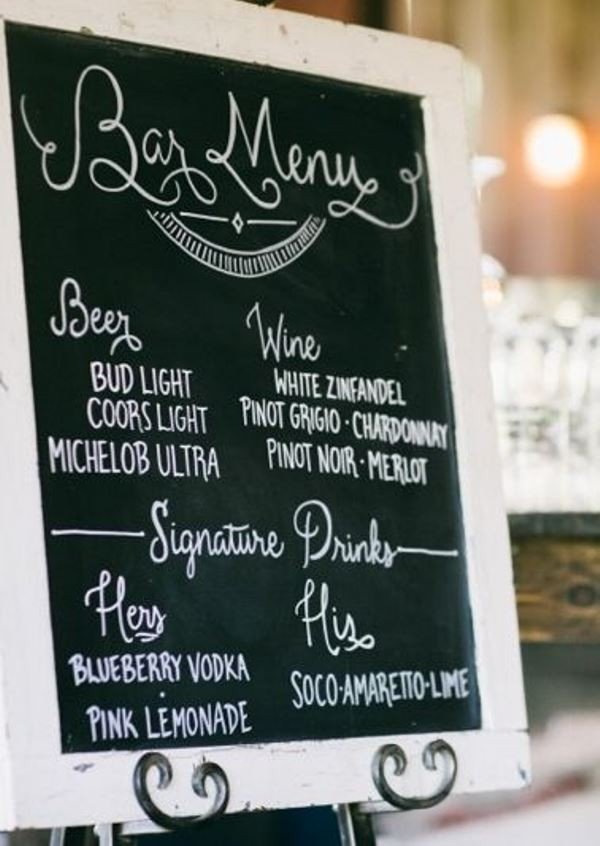 Bar Menu
Beer
BUD LIGHT
COORS LIGHT
MICHELOB ULTRA
Wine
WHITE ZINFANDEL
PINOT GRIGIO · CHARDONNAY
PINOT NOIR · MERLOT
Signature Drinks
Hers
BLUEBERRY VODKA
·
PINK LEMONADE
His
SOCO·AMARETTO·LIME